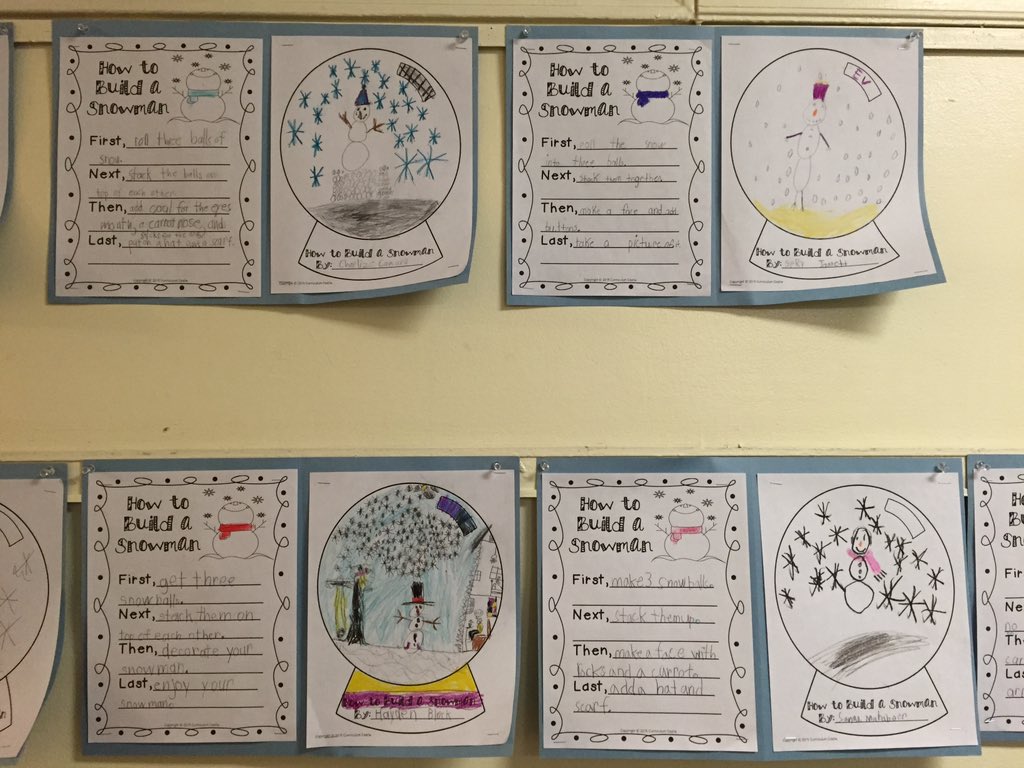 How to
Build a
Snowman
First, roll three balls of
snow.
Next, stack the balls on
top of each other.
Then, add coal for the eyes
mouth, a carrot nose, and
Last, put on a hat and a scarf.
How to Build a Snowman
By: Charlotte
How to
Build a
Snowman
First, roll the snow
into three balls.
Next, stack them together.
Then, make a face and add
buttons.
Last, take a picture
EV
How to Build a Snowman
By:
How to
Build a
Snowman
First, get three
snowballs.
Next, stack them on
top of each other.
Then, decorate your
snowman.
Last, enjoy your
snowman.
How to Build a Snowman
By: Hayden Black
How to
Build a
Snowman
First, make 3 snowballs.
Next, stack them up.
Then, make a face with
and a carrot.
Last, add a hat and
scarf.
How to Build a Snowman
By: